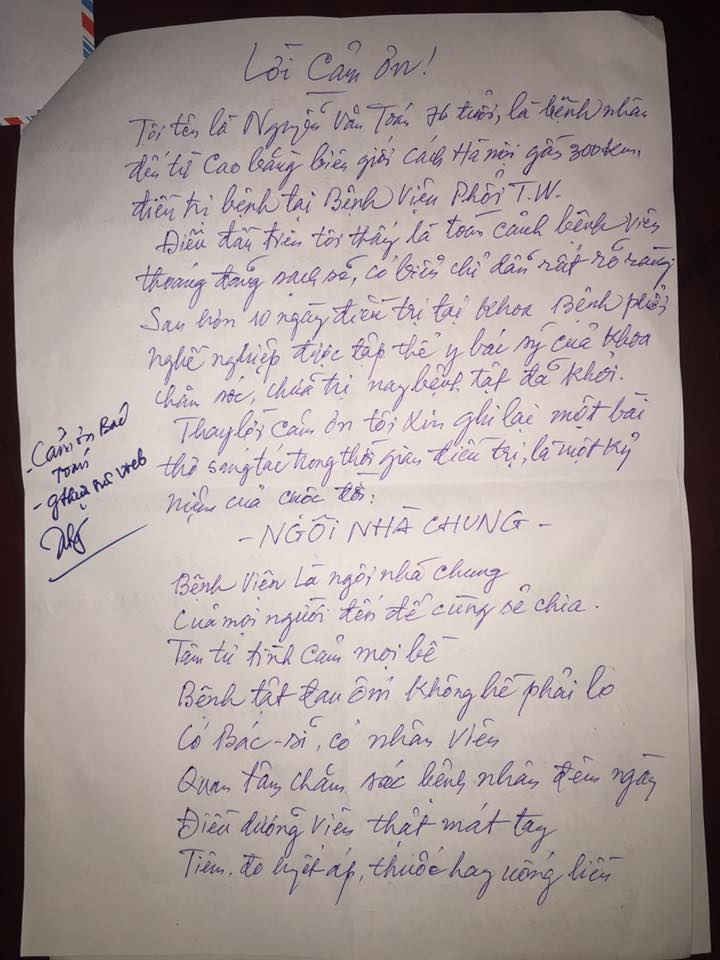 Lời Cảm ơn!
Tôi tên là Nguyễn Văn Toán 76 tuổi, là bệnh nhân
đến từ Cao bằng biên giới cách Hà nội gần 300km,
điều trị bệnh tại Bệnh Viện Phổi T.W.
Điều đầu tiên tôi thấy là toàn cảnh bệnh viện
thoáng đãng sạch sẽ, có biển chỉ dẫn rất rõ ràng
Sau hơn 10 ngày điều trị tại khoa Bệnh phổi
nghề nghiệp được tập thể y bác sỹ của khoa
chăm sóc, chữa trị nay bệnh tật đã khỏi.
Thay lời cảm ơn tôi xin ghi lại một bài
thơ sáng tác trong thời gian điều trị, là một kỷ
niệm của cuộc đời:
- Cảm ơn Bác
Toán
- web
- NGÔI NHÀ CHUNG -
Bệnh Viện Là ngôi nhà chung
Của mọi người đến để cùng sẻ chia.
Tâm tư tình cảm mọi bề
Bệnh tật đau ốm không hề phải lo
Có Bác-sĩ, có nhân viên
Quan tâm chăm sóc bệnh nhân đêm ngày
Điều dưỡng viên thật mát tay
Tiêm, đo huyết áp, thuốc hay uống liền